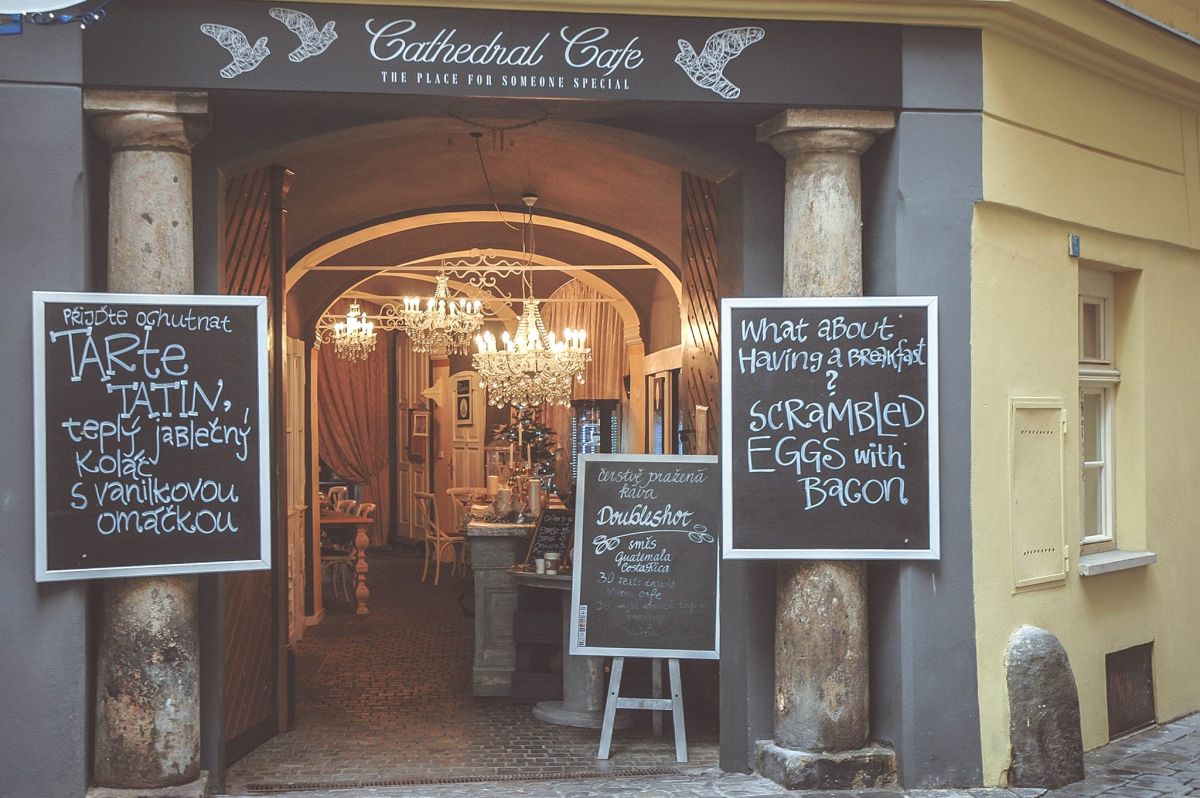 Cathedral Cafe
THE PLACE FOR SOMEONE SPECIAL
PŘIJĎTE OCHUTNAT
TARTE
TATIN,
teplý jablečný
koláč
s vanilkovou
omáčkou
What about
Having a BREAKFAST
?
SCRAMBLED
EGGS with
BACON
čerstvě pražená
káva
Doubleshot
směs
Guatemala
Costa Rica
30 seats inside
warm cafe
30 míst